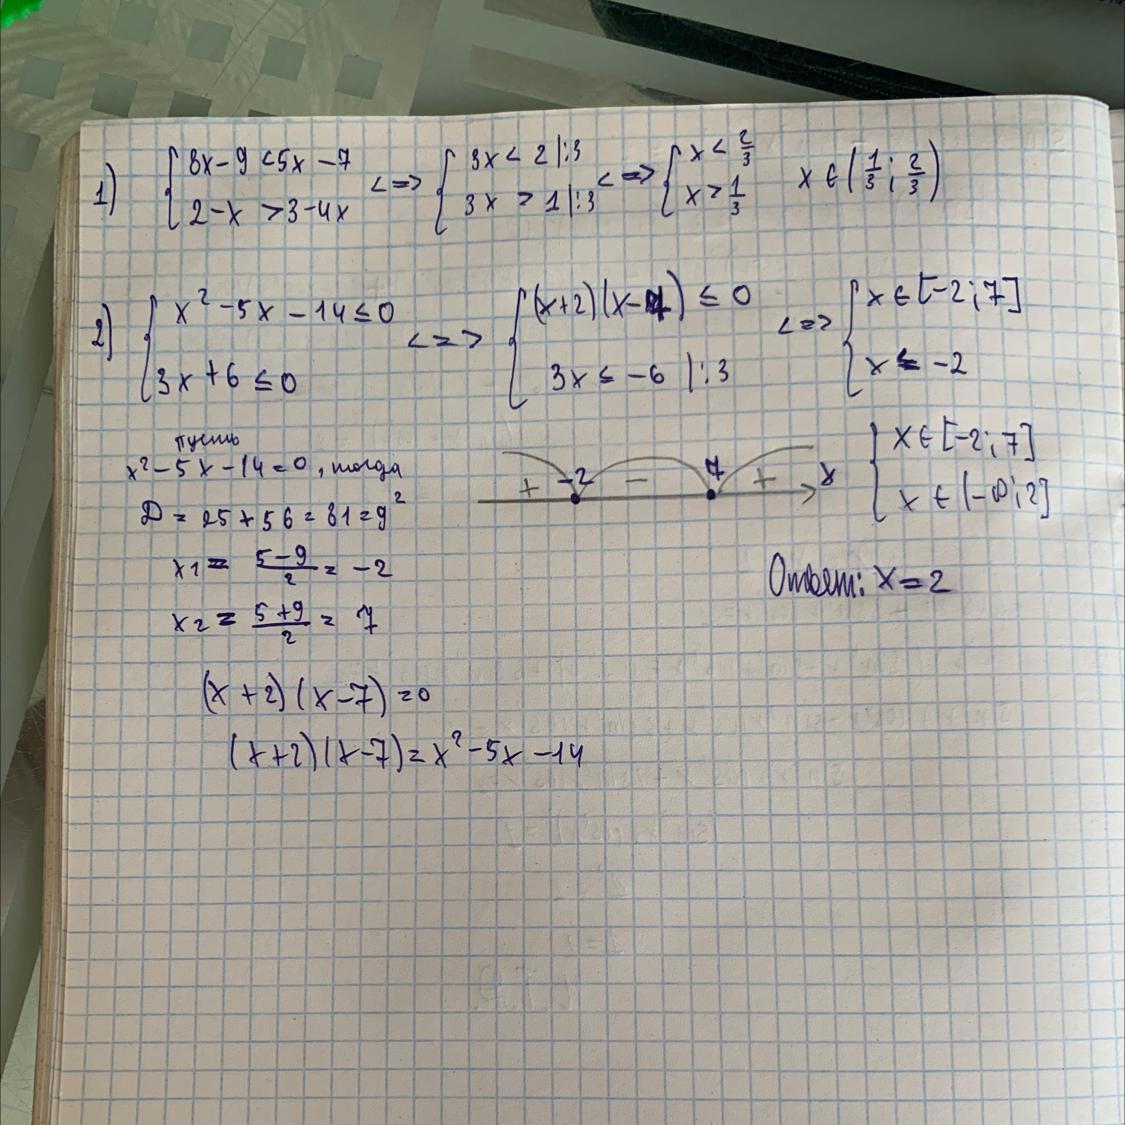 1) { 8x-9 <5x-7 <=> { 3x < 2 |:3 <=> { x < 2/3 x ∈ (1/3; 2/3)
2-x >3-4x 3x > 1 |:3 x > 1/3
2) { x² -5x -14 ≤ 0 <=> { (x+2)(x-7) ≤ 0 <=> { x ∈ [-2; 7]
3x+6 ≤ 0 3x ≤ -6 |:3 x ≤ -2
пусть
x²-5x-14=0, тогда
D = 25+56 = 81 = 9²
x1 = (5-9)/2 = -2
x2 = (5+9)/2 = 7
(x+2)(x-7)=0
(x+2)(x-7)=x²-5x-14
+ -2 - 7 + x
{ x ∈ [-2; 7]
x ∈ (-∞; 2]
Ответ: x=2